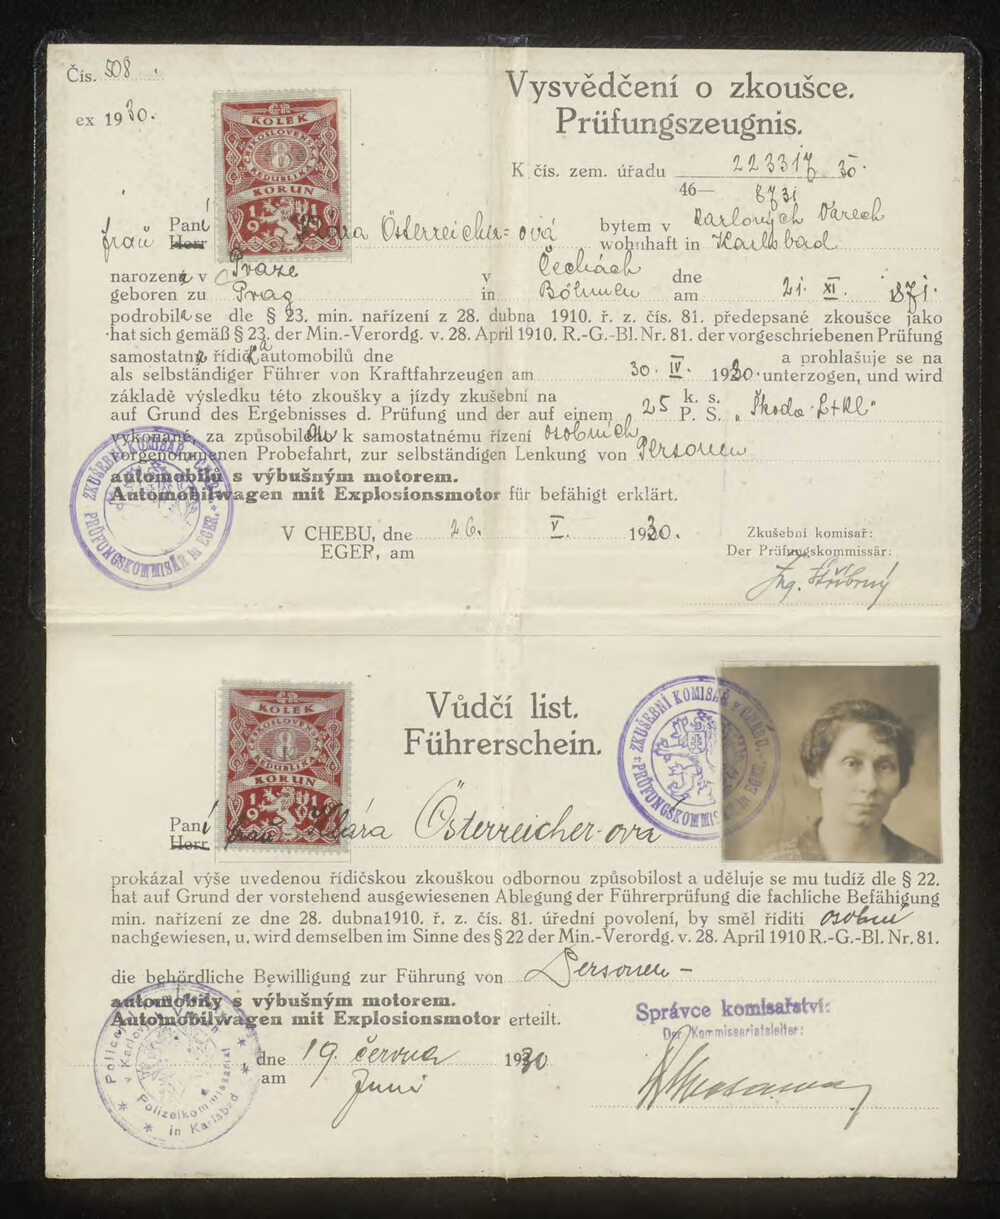 Čís. 508
ex 1930.
Vysvědčení o zkoušce.
Prüfungszeugnis.
K čís. zem. úřadu 22331 30.
46— 8731
KOLEK
ČESKOSLOVENSKÁ
REPUBLIKA
8
KORUN
1919
frau Paní Klára Österreicher-ová bytem v Karlových Varech
Herr wohnhaft in Karlsbad
narozená v Praze v Čechách dne
geboren zu Prag in Böhmen am 21. XI. 871.
podrobila se dle § 23. min. nařízení z 28. dubna 1910. č. ř. z. 81. předepsané zkoušce jako
hat sich gemäß § 23. der Min.-Verordg. v. 28. April 1910. R.-G.-Bl. Nr. 81. der vorgeschriebenen Prüfung
samostatný řídič automobilů dne a prohlašuje se na
als selbständiger Führer von Kraftfahrzeugen am 30. IV. 1930. unterzogen, und wird
základě výsledku této zkoušky a jízdy zkušební na k. s.
auf Grund des Ergebnisses d. Prüfung und der auf einem 25 P. S. „Škoda L+Kl"
vykonané, za způsobilou k samostatnému řízení osobních
vorgenommenen Probefahrt, zur selbständigen Lenkung von Personen
automobilů s výbušným motorem.
Automobilwagen mit Explosionsmotor für befähigt erklärt.
ZKUŠEBNÍ KOMISAŘ v CHEBU.
PRÜFUNGSKOMMISÄR in EGER.
V CHEBU, dne 26. V. 1930.
EGER, am
Zkušební komisař:
Der Prüfungskommissär:
Ing. Stříbrný
KOLEK
ČESKOSLOVENSKÁ
REPUBLIKA
8
KORUN
1919
Vůdčí list.
Führerschein.
ZKUŠEBNÍ KOMISAŘ v CHEBU.
PRÜFUNGSKOMMISÄR in EGER.
Paní frau Klára Österreicher-ová
Herr
prokázal výše uvedenou řídičskou zkouškou odbornou způsobilost a uděluje se mu tudíž dle § 22.
hat auf Grund der vorstehend ausgewiesenen Ablegung der Führerprüfung die fachliche Befähigung
min. nařízení ze dne 28. dubna1910. ř. z. čís. 81. úřední povolení, by směl říditi osobní
nachgewiesen, u. wird demselben im Sinne des § 22 der Min.-Verordg. v. 28. April 1910 R.-G.-Bl. Nr. 81.
die behördliche Bewilligung zur Führung von Personen -
automobily s výbušným motorem.
Automobilwagen mit Explosionsmotor erteilt.
Správce komisařství:
Der Kommissariatsleiter:
v Karlových Varech
Polizeikommissariat
in Karlsbad
dne 19. června 1930
am Juni